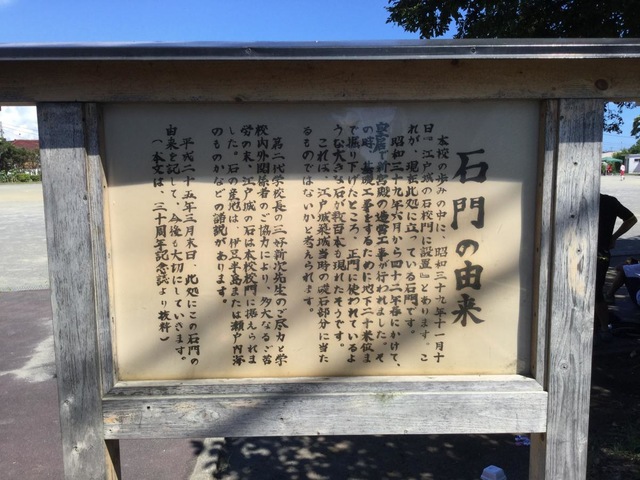 石門の由来
本校の歩みの中に、「昭和三十九年十一月十
日、江戸城の石校門に設置」とあります。こ
れが、現在此処に立っている石門です。
昭和三十九年六月から四十二年春にかけて、
皇居で新宮殿の造営工事が行われました。そ
の時、基礎工事をするために地下二十米位ま
で掘り下げたところ、正門に使われているよ
うな大きな石が幾百本も現れたそうです。
これは、江戸城築城当時の礎石部分に当た
るものではないかと考えられます。
第二代学校長の三好新次先生のご尽力と学
校内外関係者のご協力により、多大なるご苦
労の末、江戸城の石は本校校門に据えられま
した。石の産地は、伊豆半島または瀬戸内海
のものかなどの諸説があります。
平成二十五年三月末日、此処にこの石門の
由来を記して、今後も大切にしていきます。
(本文は、三十周年記念誌より抜粋)